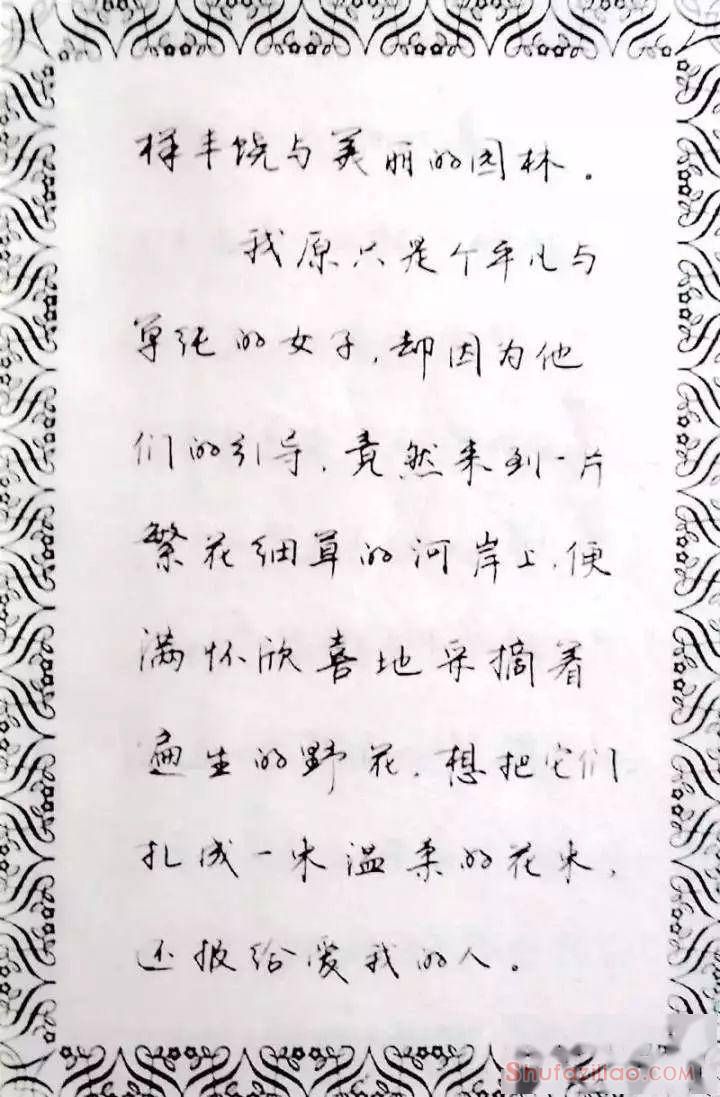 样丰饶与美丽的园林。
我原只是个平凡与
单纯的女子,却因为他
们的引导,竟然来到一片
繁花细草的河岸上,便
满怀欣喜地采摘着
遍生的野花,想把它们
扎成一束温柔的花束,
还报给爱我的人。
Shufaziliao.com